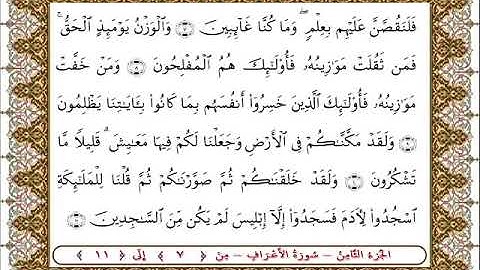 فَلَنَقُصَّنَّ عَلَيْهِم بِعِلْمٍ ۖ وَمَا كُنَّا غَآئِبِينَ ۝٧ وَٱلْوَزْنُ يَوْمَئِذٍ ٱلْحَقُّ ۚ
فَمَن ثَقُلَتْ مَوَٰزِينُهُۥ فَأُو۟لَـٰٓئِكَ هُمُ ٱلْمُفْلِحُونَ ۝٨ وَمَنْ خَفَّتْ
مَوَٰزِينُهُۥ فَأُو۟لَـٰٓئِكَ ٱلَّذِينَ خَسِرُوٓا۟ أَنفُسَهُم بِمَا كَانُوا۟ بِـَٔايَـٰتِنَا يَظْلِمُونَ
۝٩ وَلَقَدْ مَكَّنَّـٰكُمْ فِى ٱلْأَرْضِ وَجَعَلْنَا لَكُمْ فِيهَا مَعَـٰيِشَ ۗ قَلِيلًا مَّا
تَشْكُرُونَ ۝١٠ وَلَقَدْ خَلَقْنَـٰكُمْ ثُمَّ صَوَّرْنَـٰكُمْ ثُمَّ قُلْنَا لِلْمَلَـٰٓئِكَةِ
ٱسْجُدُوا۟ لِـَٔادَمَ فَسَجَدُوٓا۟ إِلَّآ إِبْلِيسَ لَمْ يَكُن مِّنَ ٱلسَّـٰجِدِينَ ۝١١
الجُزءُ الثَّامِنُ - سُورَةُ الأَعْرَافِ - مِنْ ﴿ ٧ ﴾ إِلَى ﴿ ١١ ﴾